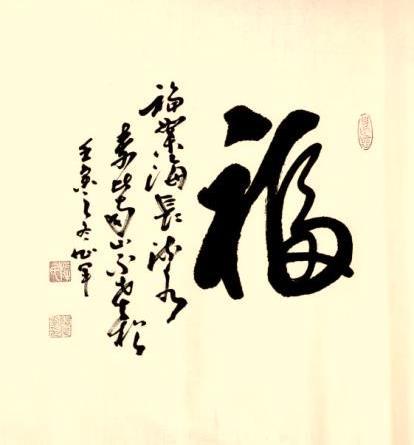 福
福如東海長流水
壽比南山不老松
壬寅之冬